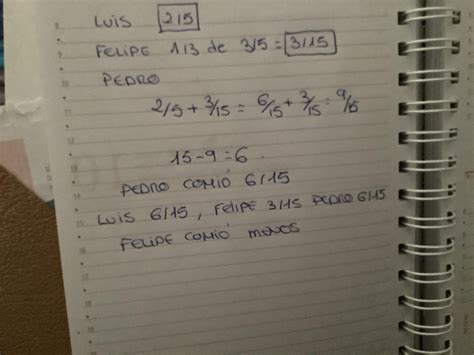 LUIS 2/5
FELIPE 1/3 de 3/5 = 3/15
PEDRO
2/5 + 3/15 = 6/15 + 3/15 = 9/15
15-9=6
PEDRO COMIÓ 6/15
LUIS 6/15, FELIPE 3/15 PEDRO 6/15
FELIPE COMIÓ MENOS